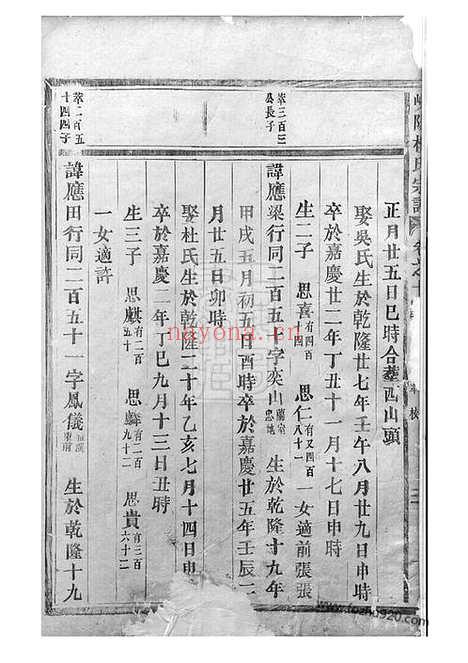 正月廿五日巳時合葬西山頭
娶吳氏生於乾隆廿七年壬午八月廿九日申時
卒於嘉慶廿二年丁丑十一月十七日申時
生二子 思喜有四百四 思仁有又四百八十一 一女適前張張
萃三百三
公長子
諱應梁行同二百五十字奕山 生於乾隆十九年
甲戌五月初五日酉時卒於嘉慶廿五年壬辰二
月廿五日卯時
娶杜氏生於乾隆二十年乙亥七月十四日申
卒於嘉慶二年丁巳九月十三日丑時
生三子 思麒有二百五十 思麟有二百九十二 思貴有三百六十二
一女適許
萃二百五
十四四子
諱應田行同二百五十一字鳳儀 生於乾隆十九
nayona.cn
www.fozhu920.com